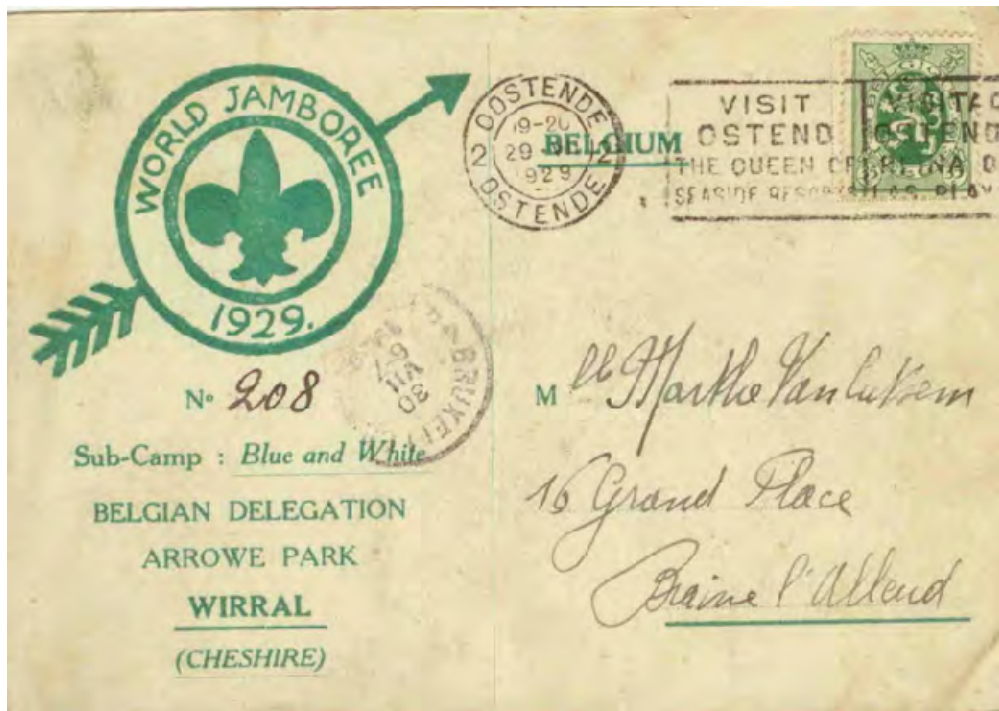 WORLD JAMBOREE
1929.
N° 208
Sub-Camp : Blue and White
BELGIAN DELEGATION
ARROWE PARK
WIRRAL
(CHESHIRE)
BELGIUM
OOSTENDE
19-20
29
1929
2 2
OSTENDE
VISIT
OSTEND
THE QUEEN OF
SEASIDE RESORTS
BRUXELL
30
VII
M lle Marthe Van
16 Grand Place
Braine l'Alleud